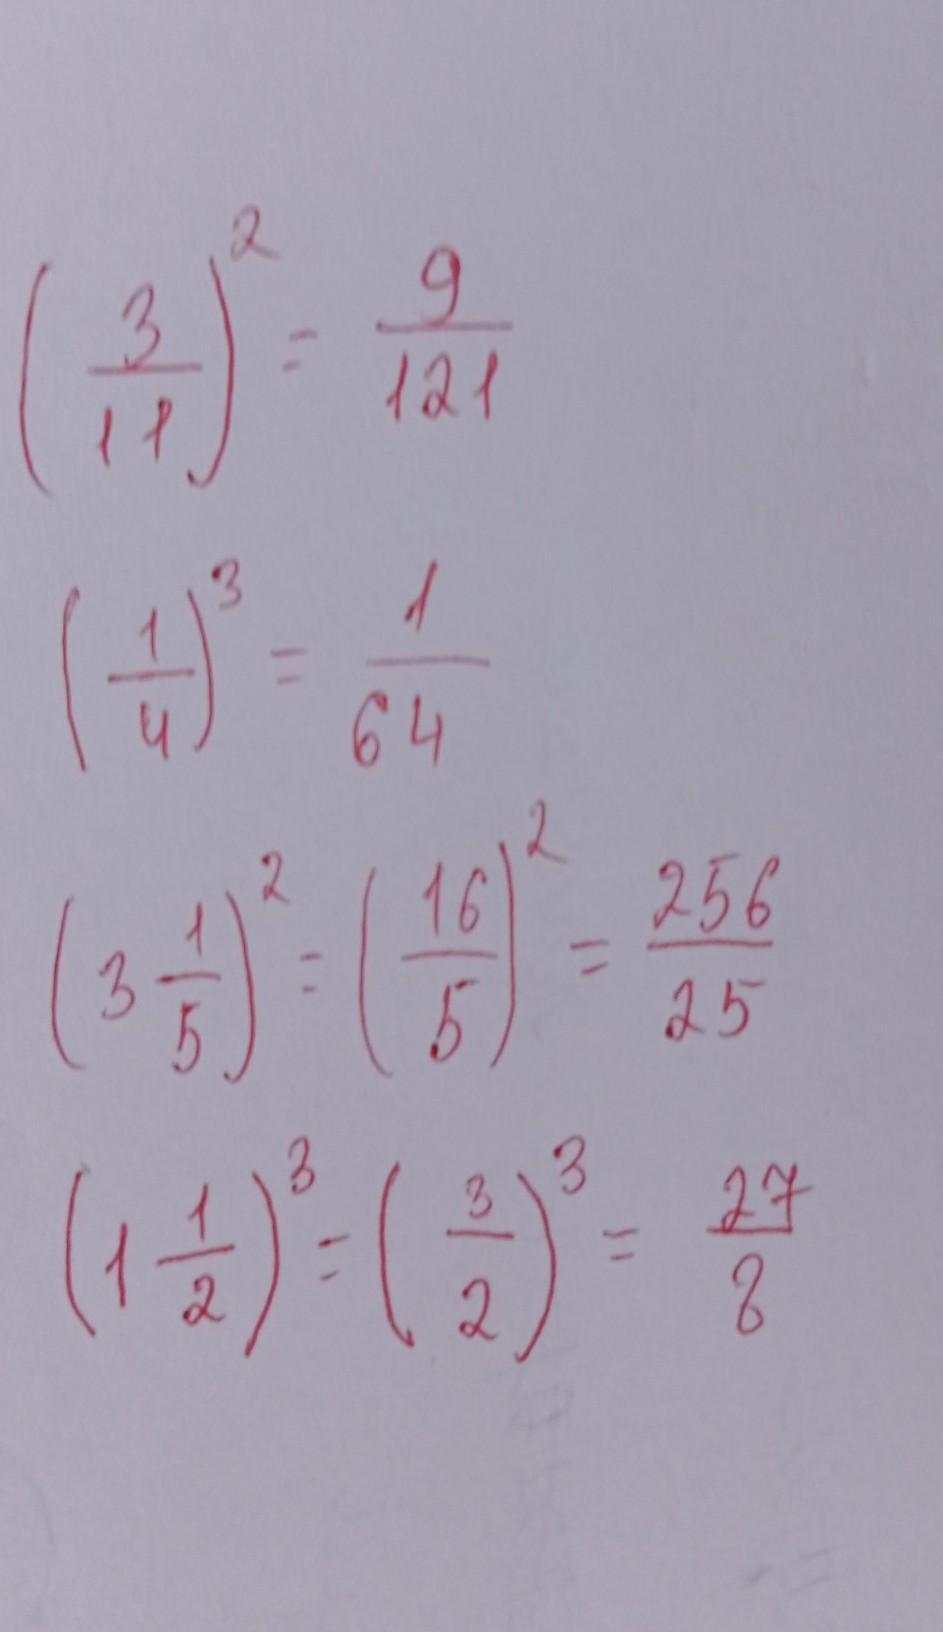 (3/11)² = 9/121
(1/4)³ = 1/64
(3 1/5)² = (16/5)² = 256/25
(1 1/2)³ = (3/2)³ = 27/8